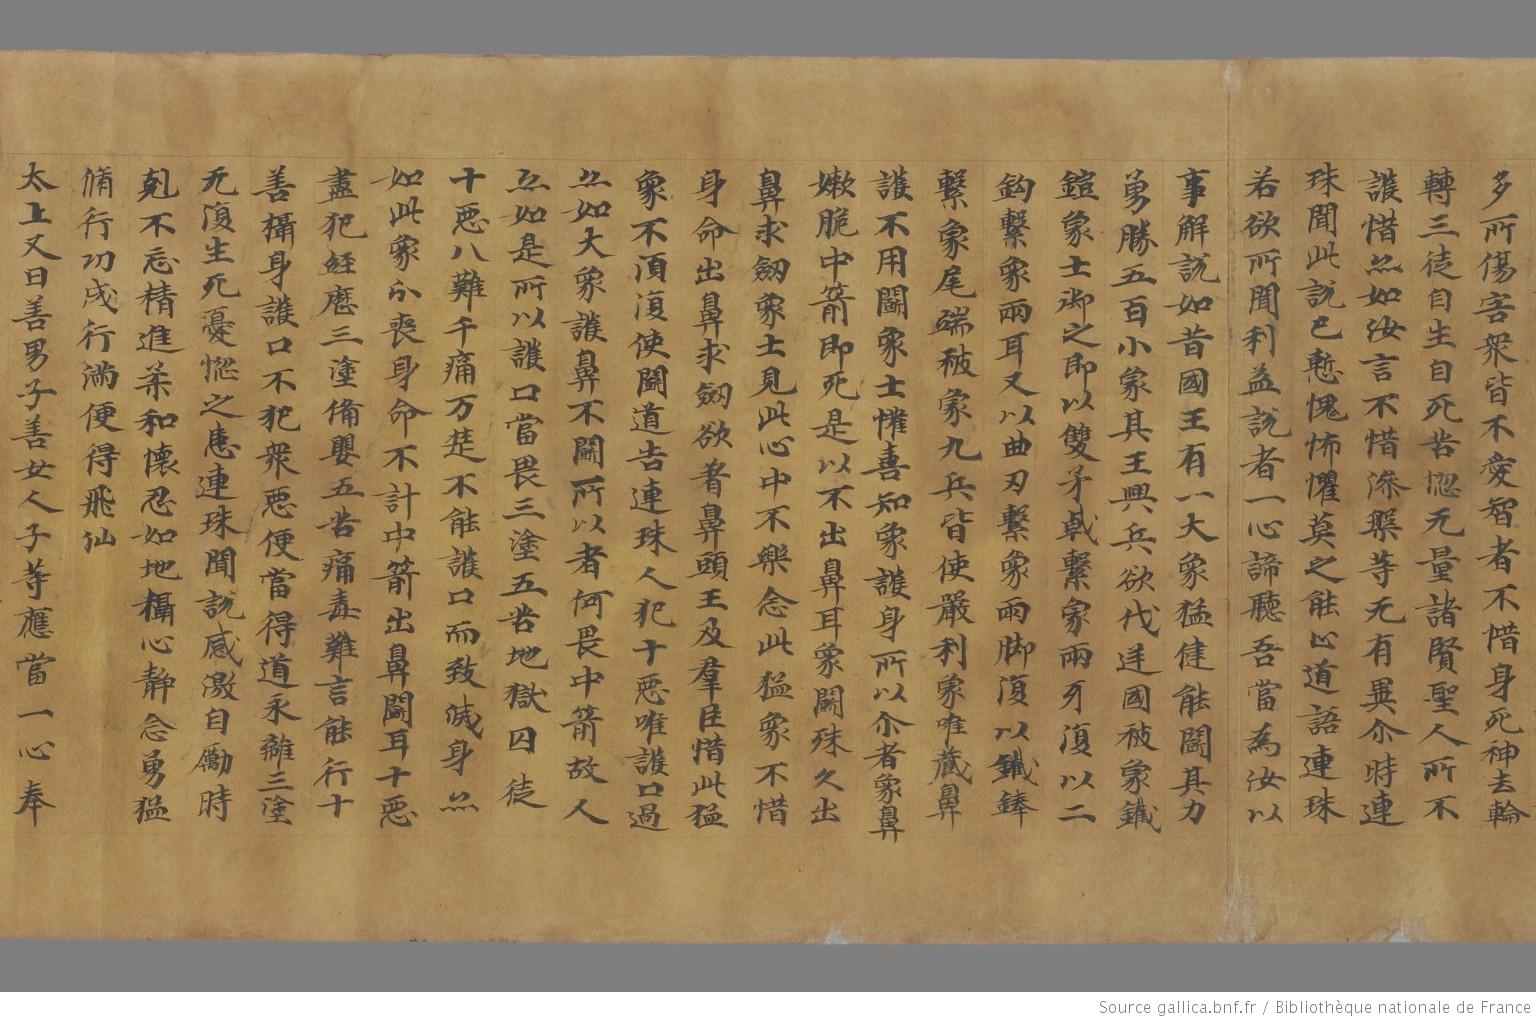 多所傷害衆皆不愛智者不惜身死神去輪
轉三徒自生自死苦惱无量諸賢聖人所不
護惜亦如汝言不惜滌槃等无有異尒時連
珠聞此說已慙愧怖懼莫之能心道語連珠
若欲所聞利益說者一心諦聽吾當為汝以
事解說如昔國王有一大象猛健能鬪其力
勇勝五百小象其王興兵欲伐逆國被象鐵
鎧象士御之即以雙矛戟繫象兩牙復以二
鈎繫象兩耳又以曲刃繫象兩脚復以鐵鋒
繫象尾端被象九兵皆使嚴利象唯藏鼻
護不用鬪象士懽喜知象護身所以尒者象鼻
嫰脆中箭即死是以不出鼻耳象鬪殊久出
鼻求劔象士見此心中不樂念此猛象不惜
身命出鼻求劔欲著鼻頭王及羣臣惜此猛
象不湏復使鬪道告連珠人犯十惡唯護口過
亦如大象護鼻不鬪所以者何畏中箭故人
亦如是所以護口當畏三塗五苦地獄囚徒
十惡八難千痛万楚不能護口而致滅身亦
如此象分喪身命不計中箭出鼻鬪耳十惡
盡犯經歷三塗備嬰五苦痛毒難言能行十
善攝身護口不犯衆惡便當得道永離三塗
无復生死憂惱之患連珠聞說感激自勵時
剋不忘精進柔和懷忍如地攝心靜念勇猛
脩行功成行滿便得飛仙
太上又曰善男子善女人子等應當一心奉
Source gallica.bnf.fr / Bibliothèque nationale de France